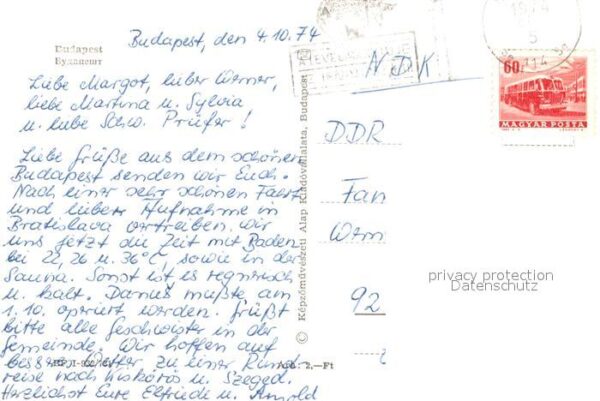 Budapest, den 4.10.74
Budapest
Будапешт
Liebe Margot, lieber Werner,
liebe Martina u. Sylvia
u. liebe Schw. Prüfer!
Liebe Grüße aus dem schönen
Budapest senden wir Euch.
Nach einer sehr schönen Fahrt
und lieber Aufnahme in
Bratislava vertreiben wir
uns jetzt die Zeit mit Baden
bei 22, 26 u. 36°C, sowie in der
Sauna. Sonst ist es regnerisch
u. kalt. Darius mußte am
1.10. operiert werden. Grüßt
bitte alle Geschwister in der
Gemeinde. Wir hoffen auf
besseres Wetter zu einer Rund
reise nach Kiskörös u. Szeged.
Herzlichst Eure Elfriede u. Arnold
© Képzőművészeti Alap Kiadóvállalata, Budapest
2,—Ft
NDK
DDR
Fan
Wern
92
60f
MAGYAR POSTA
privacy protection
Datenschutz